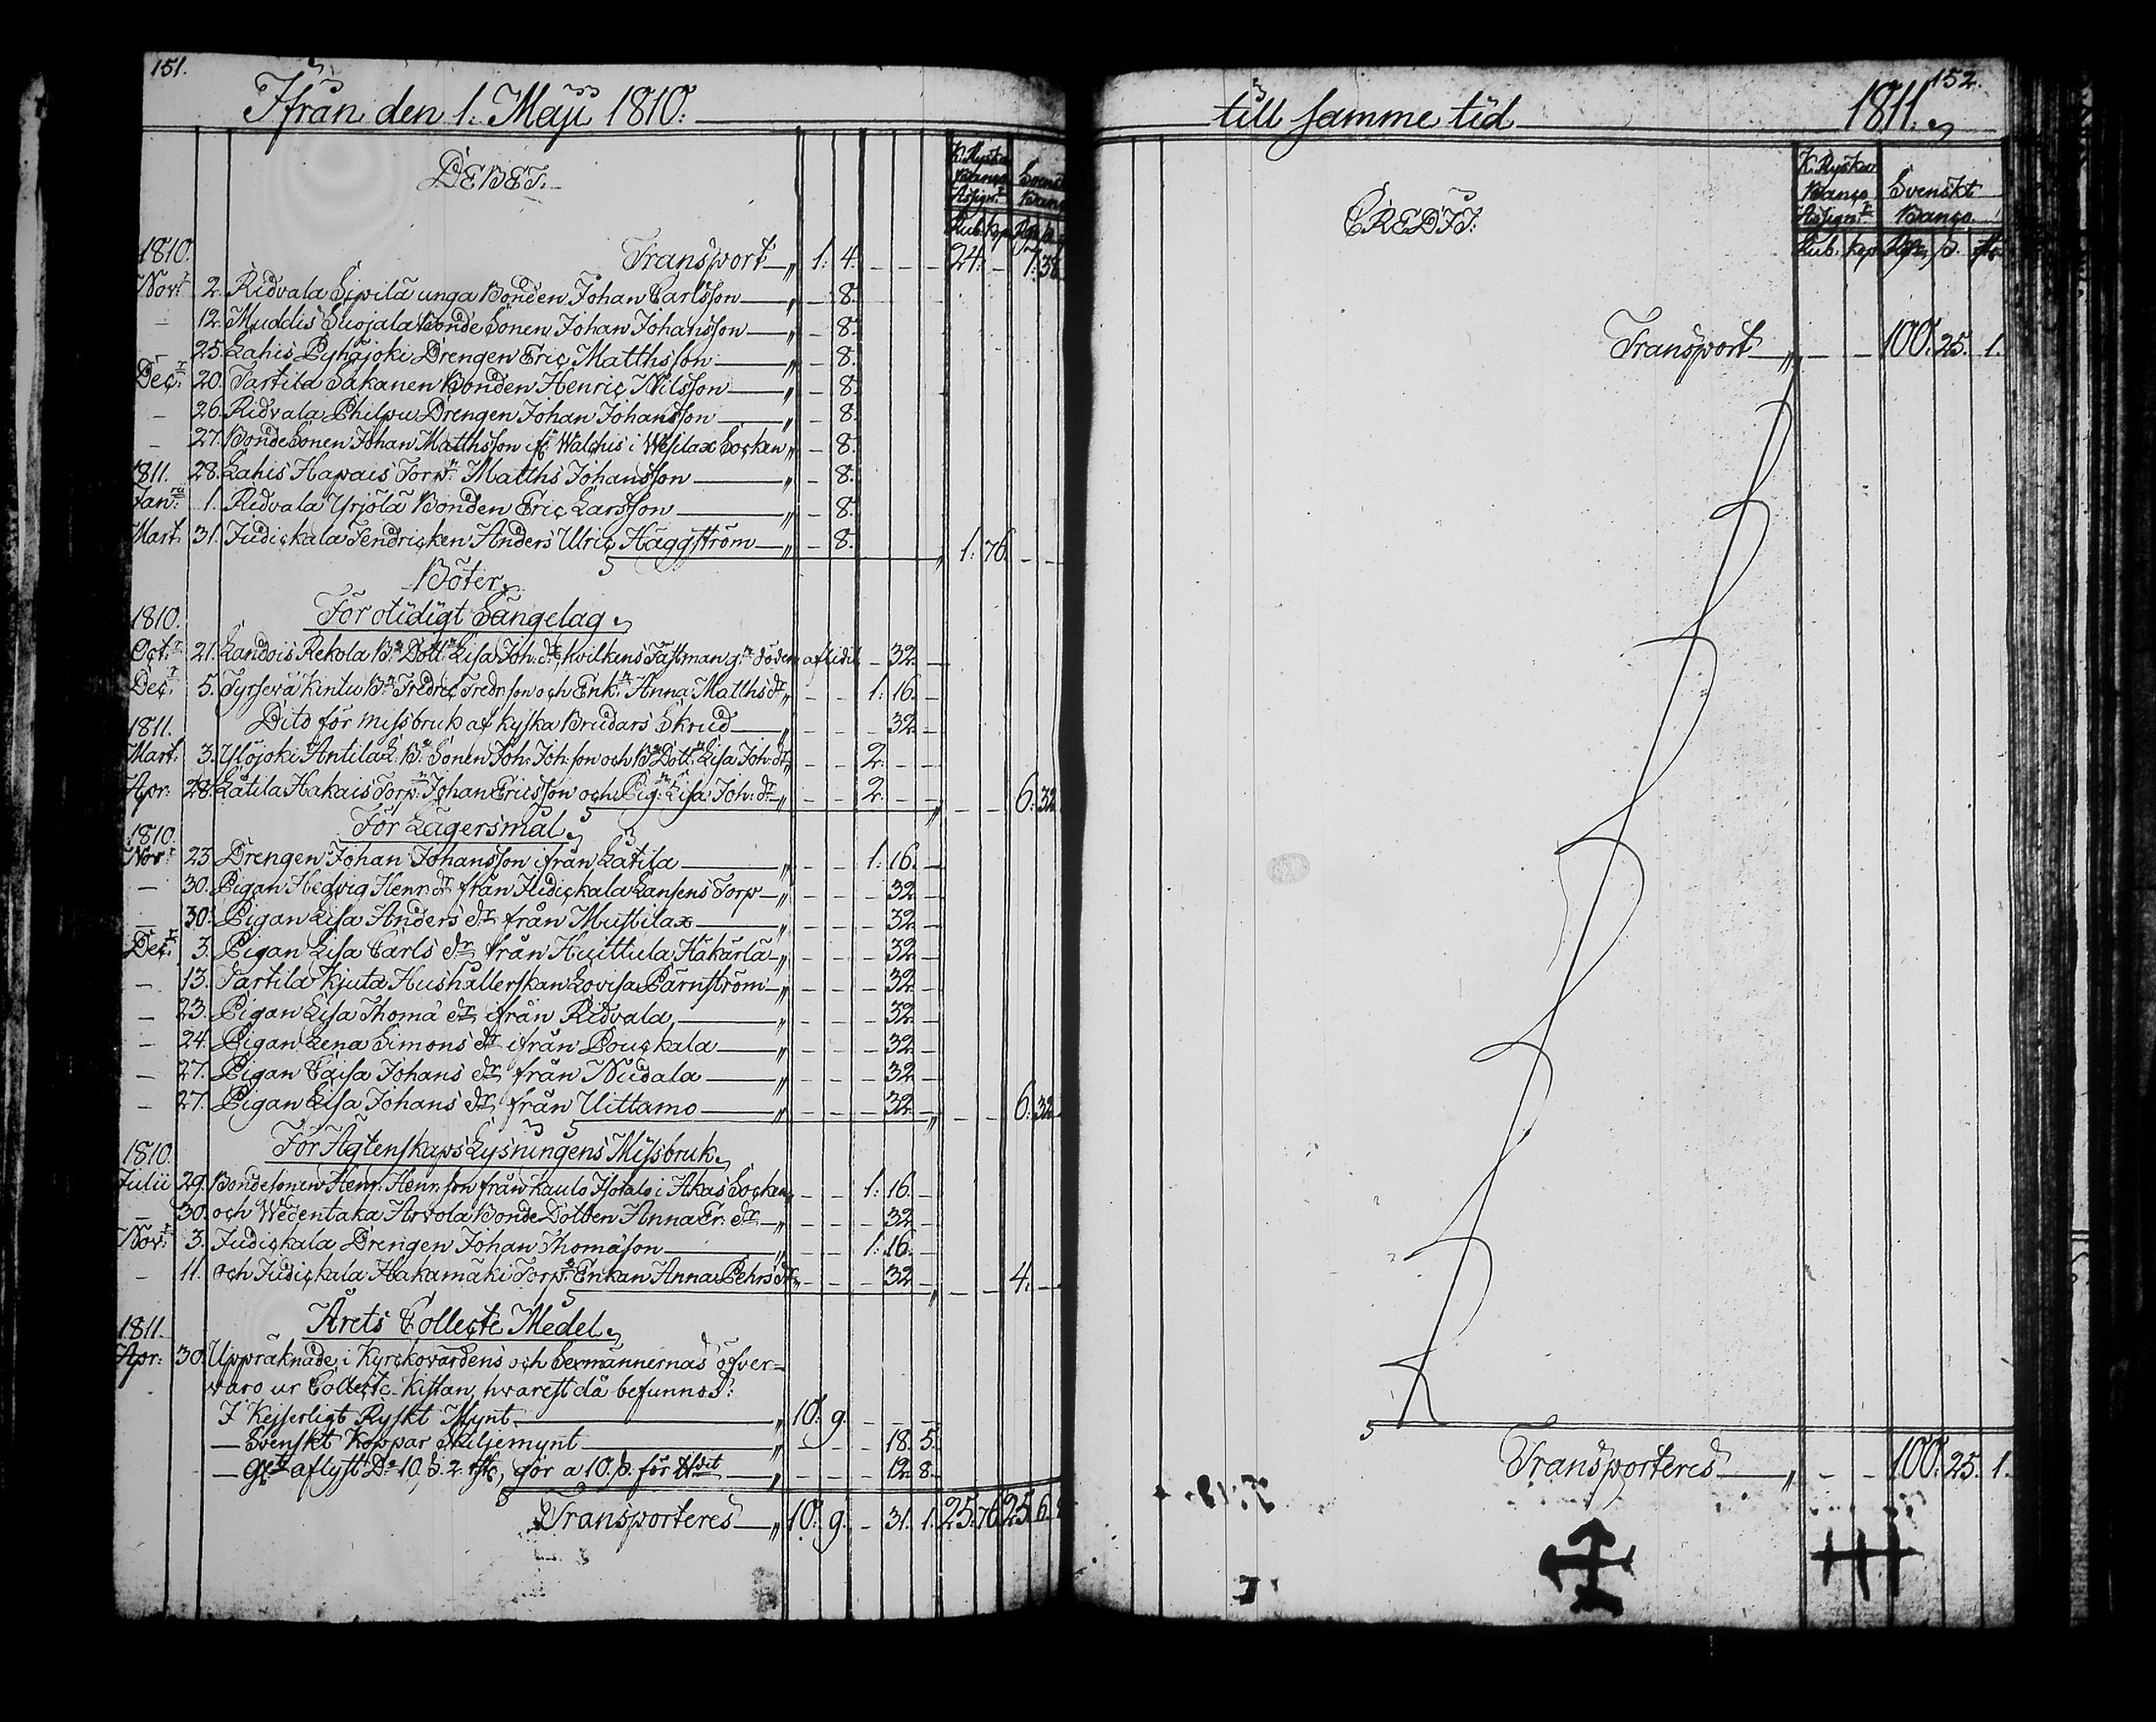 151.
Ifrån den 1. Maji 1810.
DEBET.
K. Ryska Banço Assignr
Rub. kop
1810. Transport „ 1: 4. – – – 24. – 7: 38
Novr 2. Ridvala Sipilä unga Bonden Johan Carlsson „ – 8.
– 12. Muddis Suojala Bonde Sonen Johan Johansson „ – 8.
25. Lahis Pyhäjoki Drengen Eriç Matthsson „ – 8.
Deçr 20. Tartila Sakanen Bonden Henriç Nilsson „ – 8.
– 26. Ridvala Philpu Drengen Johan Johansson „ – 8.
– 27. Bonde Sonen Johan Matthsson ifr Walçhis i Wesilax Soçken „ – 8.
1811. 28. Lahis Hapais Torpn Matths Johansson „ – 8.
Janr 1. Ridvala Yrjölä Bonden Eriç Larsson „ – 8.
Mart. 31. Judiçkala Fendriçken Anders Ulriç Häggström „ – 8. „ 1: 76. – –
Böter
1810. För otidigt Sängelag
Oçtr 21. Landois Rekola Bn Dottn Lisa Joh: dr, hvilkens Fästman gn döden aflidit – 32. –
Deçr 5. Tyrsevä Kintu Bn Fredriç Fredr.son och Enkn Anna Matths dr „ – – 1: 16. –
1811. Dito för missbruk af kyska Brudars Skrud „ – – – 32. –
Mart. 3. Ylöjoki Antila L. Bn Sonen Joh: Joh:son och Bn Dottn Lisa Joh: dr „ – – 2. – –
Apr: 28. Låtila Hakais Torpn Johan Ericsson och Pign Lisa Joh: dr „ – – 2. – – „ – – 6: 32
1810. För Lägersmål
Novr 23. Drengen Johan Johansson ifrån Låtila „ – – 1: 16. –
– 30. Pigan Hedvig Henr: dr från Judiçkala Lansens Torp „ – – – 32. –
– 30. Pigan Lisa Anders dr från Mustilax „ – – – 32. –
Deçr 3. Pigan Lisa Carls dr från Huittula Hakärlä „ – – – 32. –
– 13. Tartila Kjuta Hushållerskan Lovisa Pärnström „ – – – 32. –
– 23. Pigan Lisa Thomä dr ifrån Ridvala „ – – – 32. –
– 24. Pigan Lena Simons dr ifrån Pouçkala „ – – – 32. –
– 27. Pigan Caisa Johans dr från Nudala „ – – – 32. –
– 27. Pigan Lisa Johans dr från Uittamo „ – – – 32. – „ – – 6: 32.
1810. För Äçtenskaps Lysningens Missbruk
Julii 29. Bondesonen Henr. Henr.son från Kaulo Isotalo i Akas Soçken „ – – 1: 16. –
– 30. och Wedentaka Arvola Bonde Dotten Anna Er: dr „ – – – 32. –
Novr 3. Judiçkala Drengen Johan Thomäson „ – – 1: 16. –
– 11. och Judiçkala Hakamäki Torpe Enkan Anna Pehrs dr „ – – – 32. – „ – – 4. –
1811. Årets Colleçte Medel
Apr: 30. Uppräknade i Kyrckovärdens och Sexmännernas öfver=
varo ur Colleçte-Kistan, hvarest då befunnos:
I Kejserligt Ryskt Mynt „ 10: 9. – – –
— Svenskt Koppar Skiljemynt „ – – – 18. 5.
— aflyst Do 10. ß. 2. rst, gör a 10. ß. för „ – – – 12. 8.
Transporteres „ 10: 9. – 31. 1. 25. 76. 25. 6.
152.
till samme tid 1811.
CREDIT.
K. Ryska Banço Assignr Svenskt Banço.
Rub. kop Rdr ß. rst
Transport „ – – 100. 25. 1.
Transporteres „ – – 100. 25. 1.